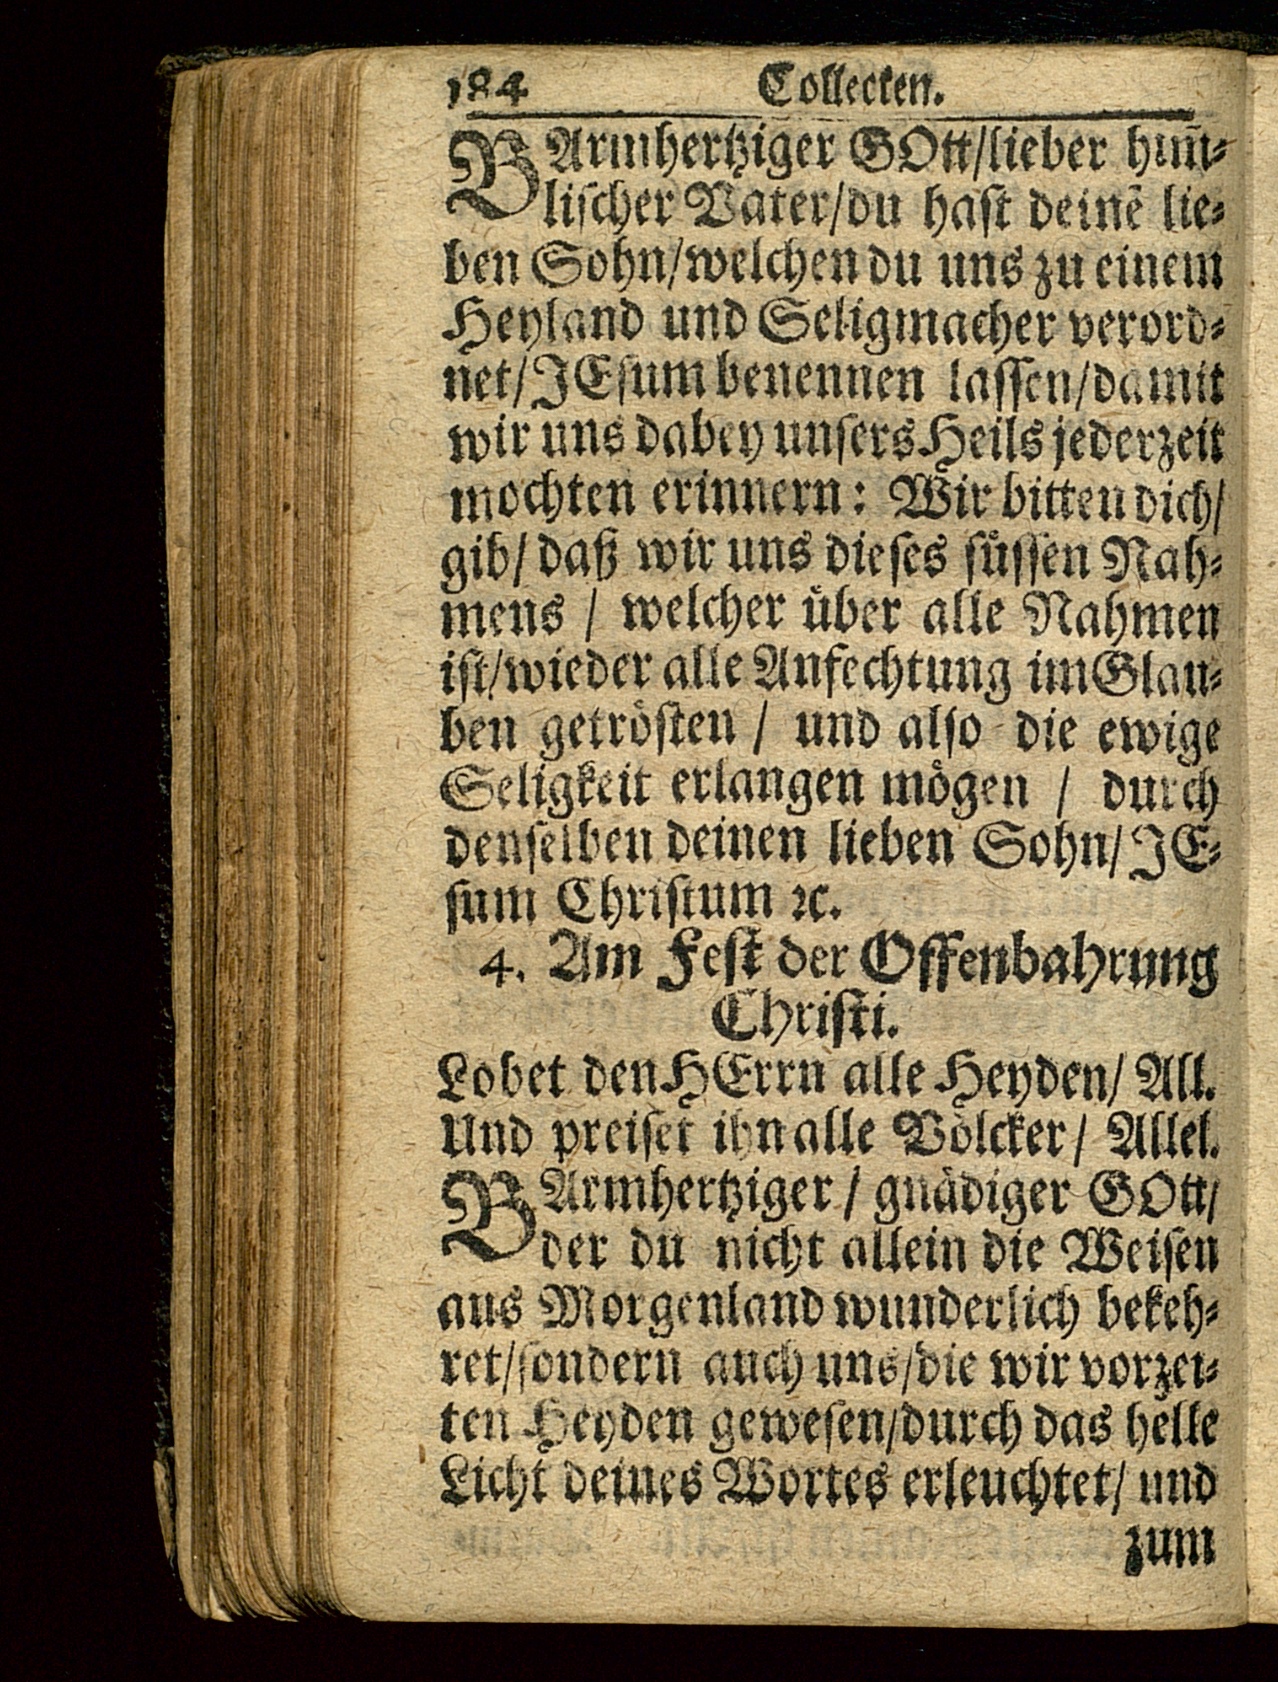 184 Collecten.
BArmhertziger GOtt/lieber him̄-
lischer Vater/du hast deinē lie-
ben Sohn/welchen du uns zu einem
Heyland und Seligmacher verord-
net/JEsum benennen lassen/damit
wir uns dabey unsers Heils jederzeit
mochten erinnern: Wir bitten dich/
gib/ daß wir uns dieses süssen Nah-
mens / welcher über alle Nahmen
ist/wieder alle Anfechtung im Glau-
ben getrösten / und also die ewige
Seligkeit erlangen mögen / durch
denselben deinen lieben Sohn/JE-
sum Christum ꝛc.
4. Am Fest der Offenbahrung
Christi.
Lobet den HErrn alle Heyden/ All.
Und preiset ihn alle Völcker/ Allel.
BArmhertziger / gnädiger GOtt/
der du nicht allein die Weisen
aus Morgenland wunderlich bekeh-
ret/sondern auch uns/die wir vorzei-
ten Heyden gewesen/durch das helle
Licht deines Wortes erleuchtet/ und
zum